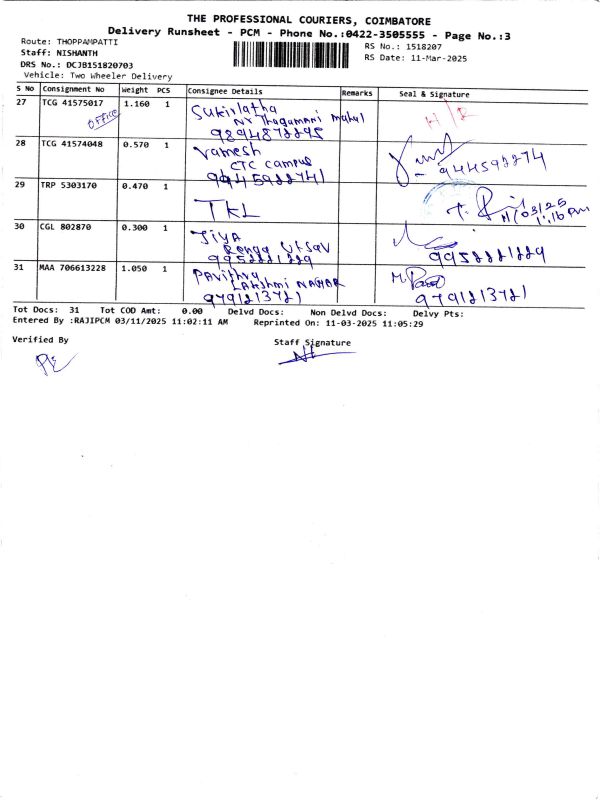 THE PROFESSIONAL COURIERS, COIMBATORE
Delivery Runsheet - PCM - Phone No.:0422-3505555 - Page No.:3
Route: THOPPAMPATTI
RS No.: 1518207
Staff: NISHANTH
RS Date: 11-Mar-2025
DRS No.: DCJB151820703
Vehicle: Two Wheeler Delivery
S No Consignment No Weight PCS Consignee Details Remarks Seal & Signature
27 TCG 41575017 1.160 1 Sukirlatha
office Nr Thagamani mahal H/R
9894872295
28 TCG 41574048 0.570 1 Ramesh
CTC campus
29 TRP 5303170 0.470 1 TKL
11/03/25
1:16 pm
30 CGL 802870 0.300 1 Jiya
Renga Utsav
31 MAA 706613228 1.050 1 Pavithra
Lakshmi NAGAR
9791213721 9791213721
Tot Docs: 31 Tot COD Amt: 0.00 Delvd Docs: Non Delvd Docs: Delvy Pts:
Entered By :RAJIPCM 03/11/2025 11:02:11 AM Reprinted On: 11-03-2025 11:05:29
Verified By
Staff Signature